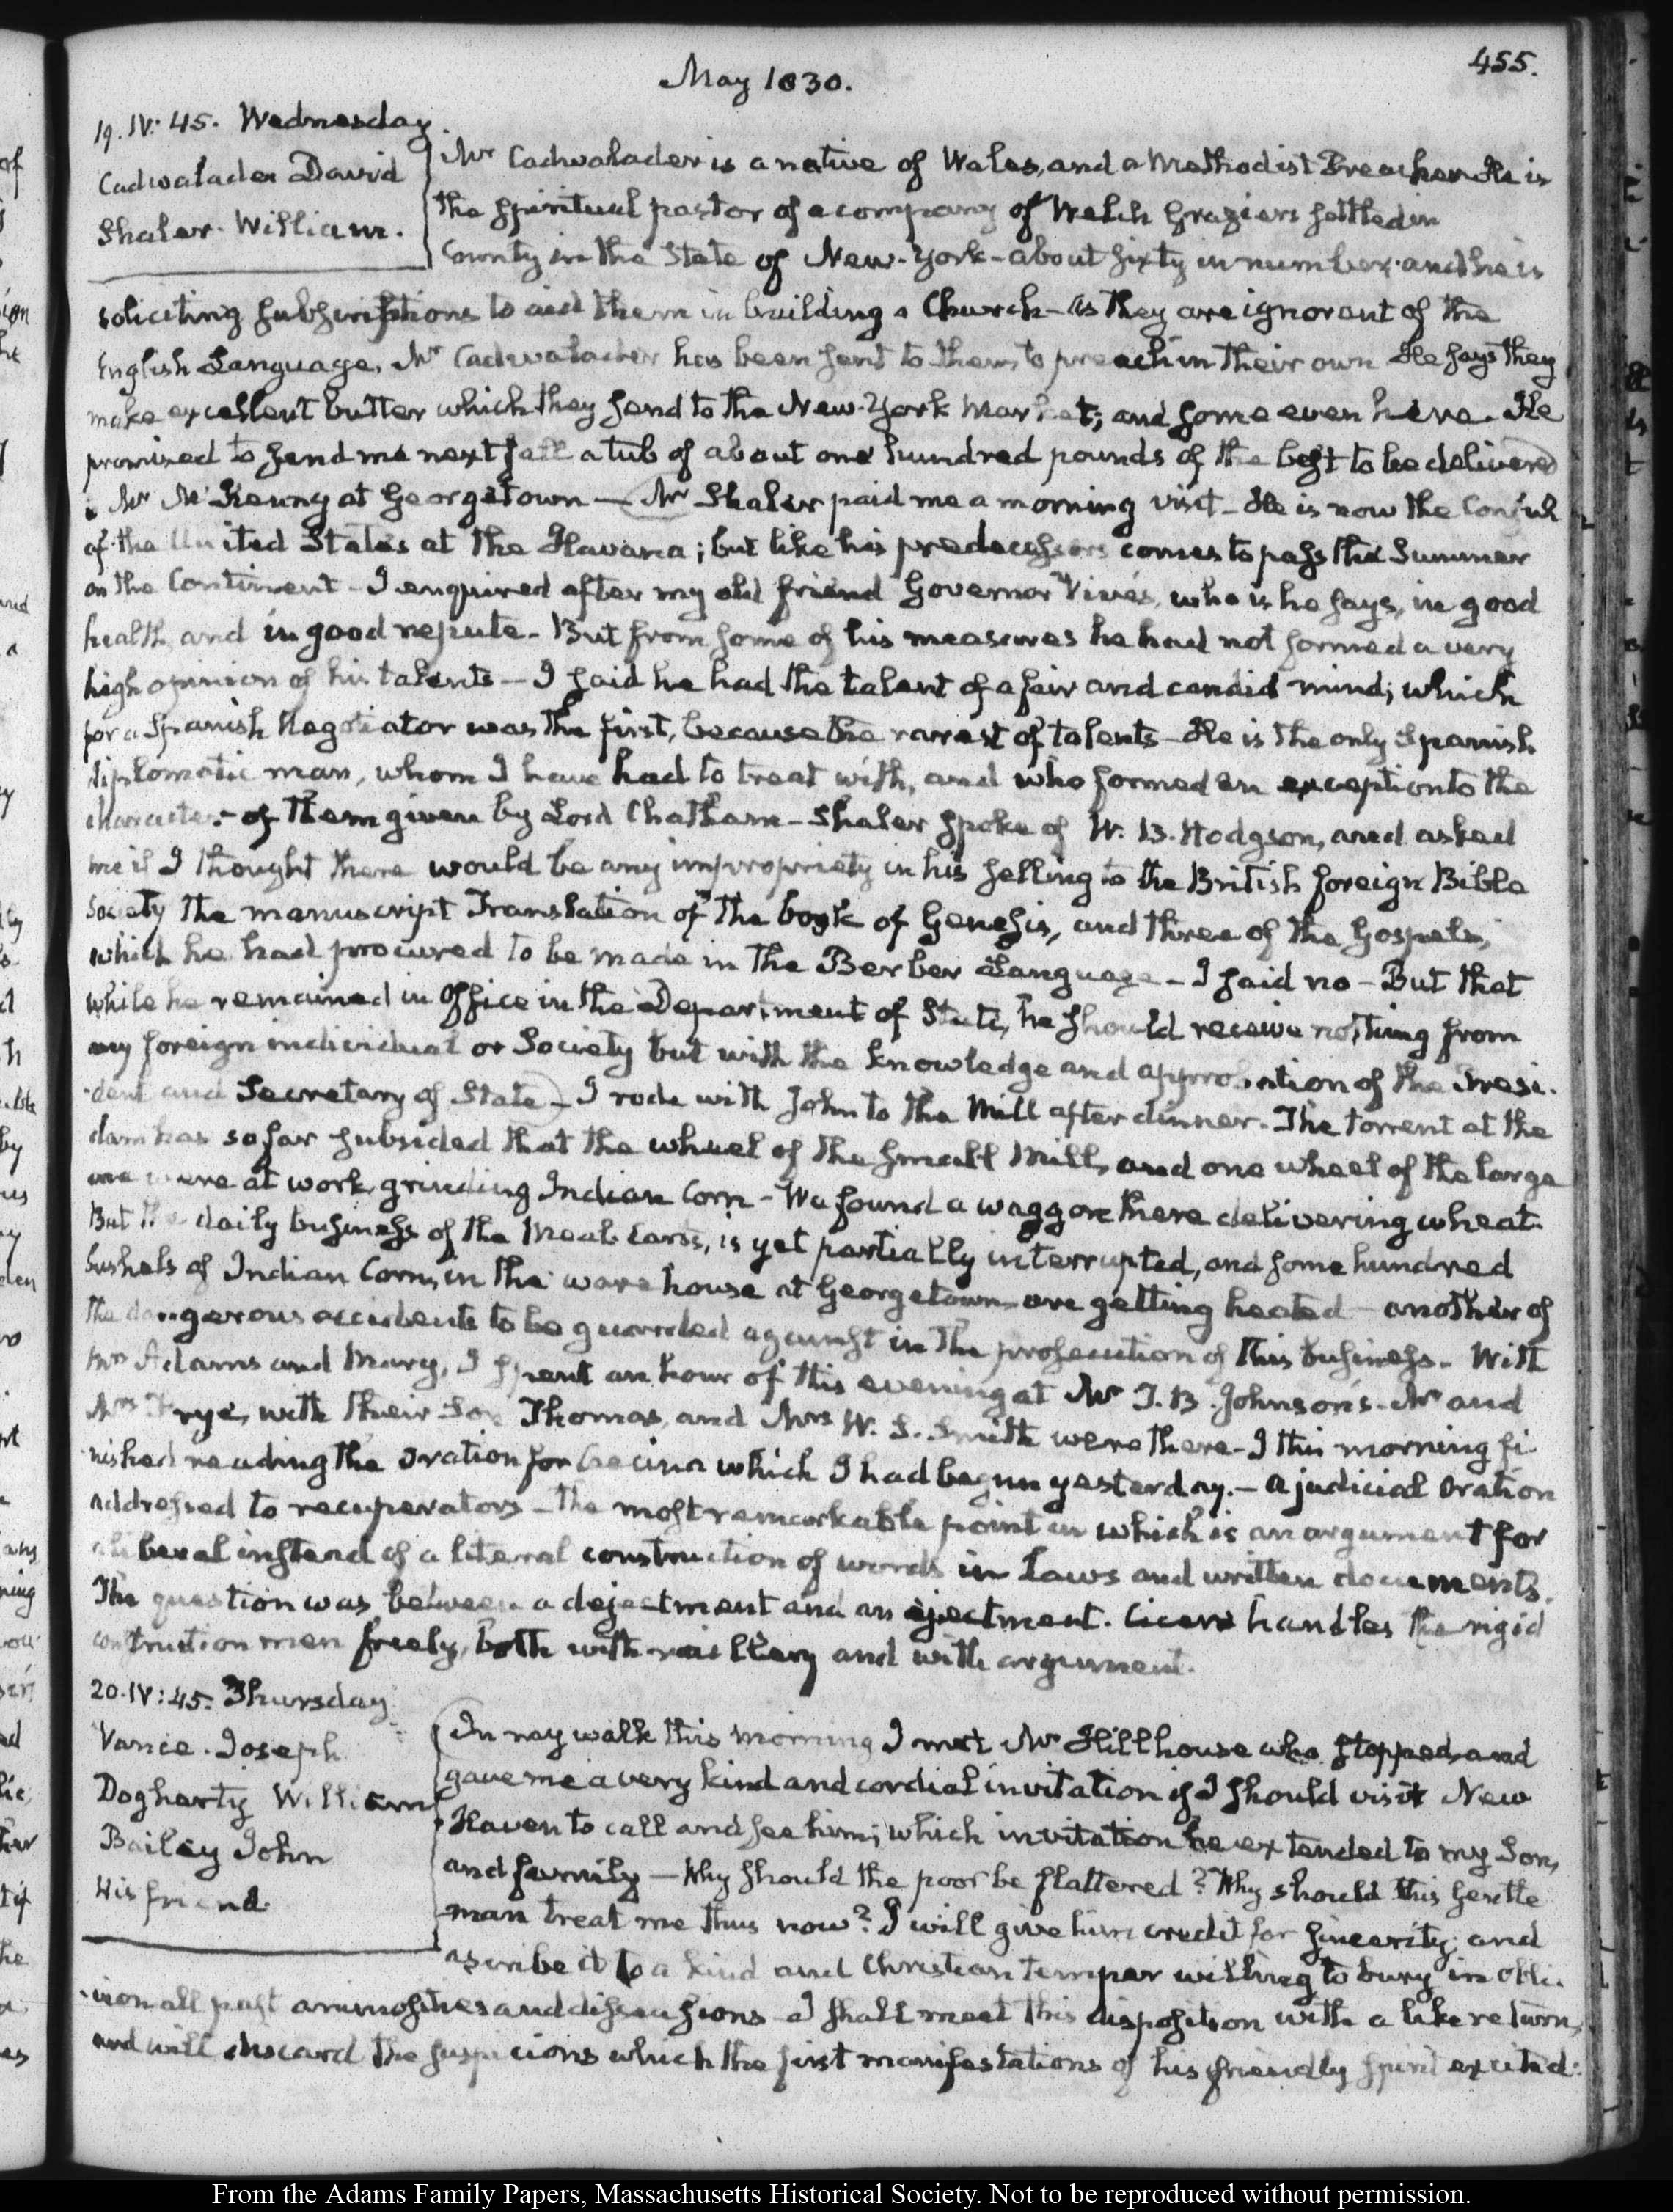 455.
May 1830.
19. IV: 45. Wednesday.
Cadwalader David
Shaler. William.
Mr Cadwalader is a native of Wales, and a Methodist Preacher. He is
the spiritual pastor of a company of Welch Graziers settled in
County in the State of New-York- about sixty in number. and he is
soliciting subscriptions to aid them in building a Church- As they are ignorant of the
English Language, Mr Cadwalader has been sent to them to preach in their own He says they
make excellent butter which they send to the New-York Market; and some even here. He
promised to send me next fall a tub of about one hundred pounds of the best to be delivered
Mr McKenny at Georgetown — Mr Shaler paid me a morning visit- He is now the Consul
of the United States at the Havana; but like his predecessors comes to pass the Summer
on the Continent- I enquired after my old friend Governor Vives, who is he says, in good
health, and in good repute- But from some of his measures he had not formed a very
high opinion of his talents — I said he had the talent of a fair and candid mind; which
for a Spanish Negotiator was the first, because the rarest of talents- He is the only Spanish
diplomatic man, whom I have had to treat with, and who formed an exception to the
character- of them given by Lord Chatham- Shaler spoke of W. B. Hodgson, and asked
me if I thought there would be any impropriety in his selling to the British foreign Bible
Society the manuscript Translation of the book of Genesis, and three of the Gospels,
which he had procured to be made in the Berber Language- I said no- But that
while he remained in Office in the Department of State, he should receive nothing from
any foreign individual or Society but with the knowledge and approbation of the Presi-
-dent and Secretary of State- I rode with John to the Mill after dinner. The torrent at the
dam has so far subsided that the wheel of the small Mill, and one wheel of the large
one were at work, grinding Indian Corn- We found a waggon there delivering wheat.
But the daily business of the Meal Carts, is yet partially interrupted, and some hundred
bushels of Indian Corn, in the ware house at Georgetown are getting heated- another of
the dangerous accidents to be guarded against in the prosecution of this business- With
Mrs Adams and Mary, I spent an hour of this evening at Mr T. B. Johnson's- Mr and
Mrs Frye, with their Son Thomas, and Mrs W. S. Smith were there- I this morning fi-
-nished reading the oration for Cecina which I had begun yesterday.- A judicial Oration
addressed to recuperators- the most remarkable point in which is an argument for
a liberal instead of a literal construction of words in Laws and written documents.
The question was between a dejectment and an ejectment. Cicero handles the rigid
construction men freely, both with raillery and with argument.
20. IV: 45. Thursday
Vance. Joseph
Dogharty William
Bailey John
His friend.
In my walk this morning I met Mr Hillhouse who stopped, and
gave me a very kind and cordial invitation if I should visit New
Haven to call and see him; which invitation he extended to my Son,
and family — Why should the poor be flattered? Why should this Gentle
man treat me thus now? I will give him credit for sincerity; and
ascribe it to a kind and Christian temper willing to bury in obli-
-vion all past animosities and dissensions- I shall meet this disposition with a like return,
and will discard the suspicions which the first manifestations of his friendly spirit excited:
From the Adams Family Papers, Massachusetts Historical Society. Not to be reproduced without permission.